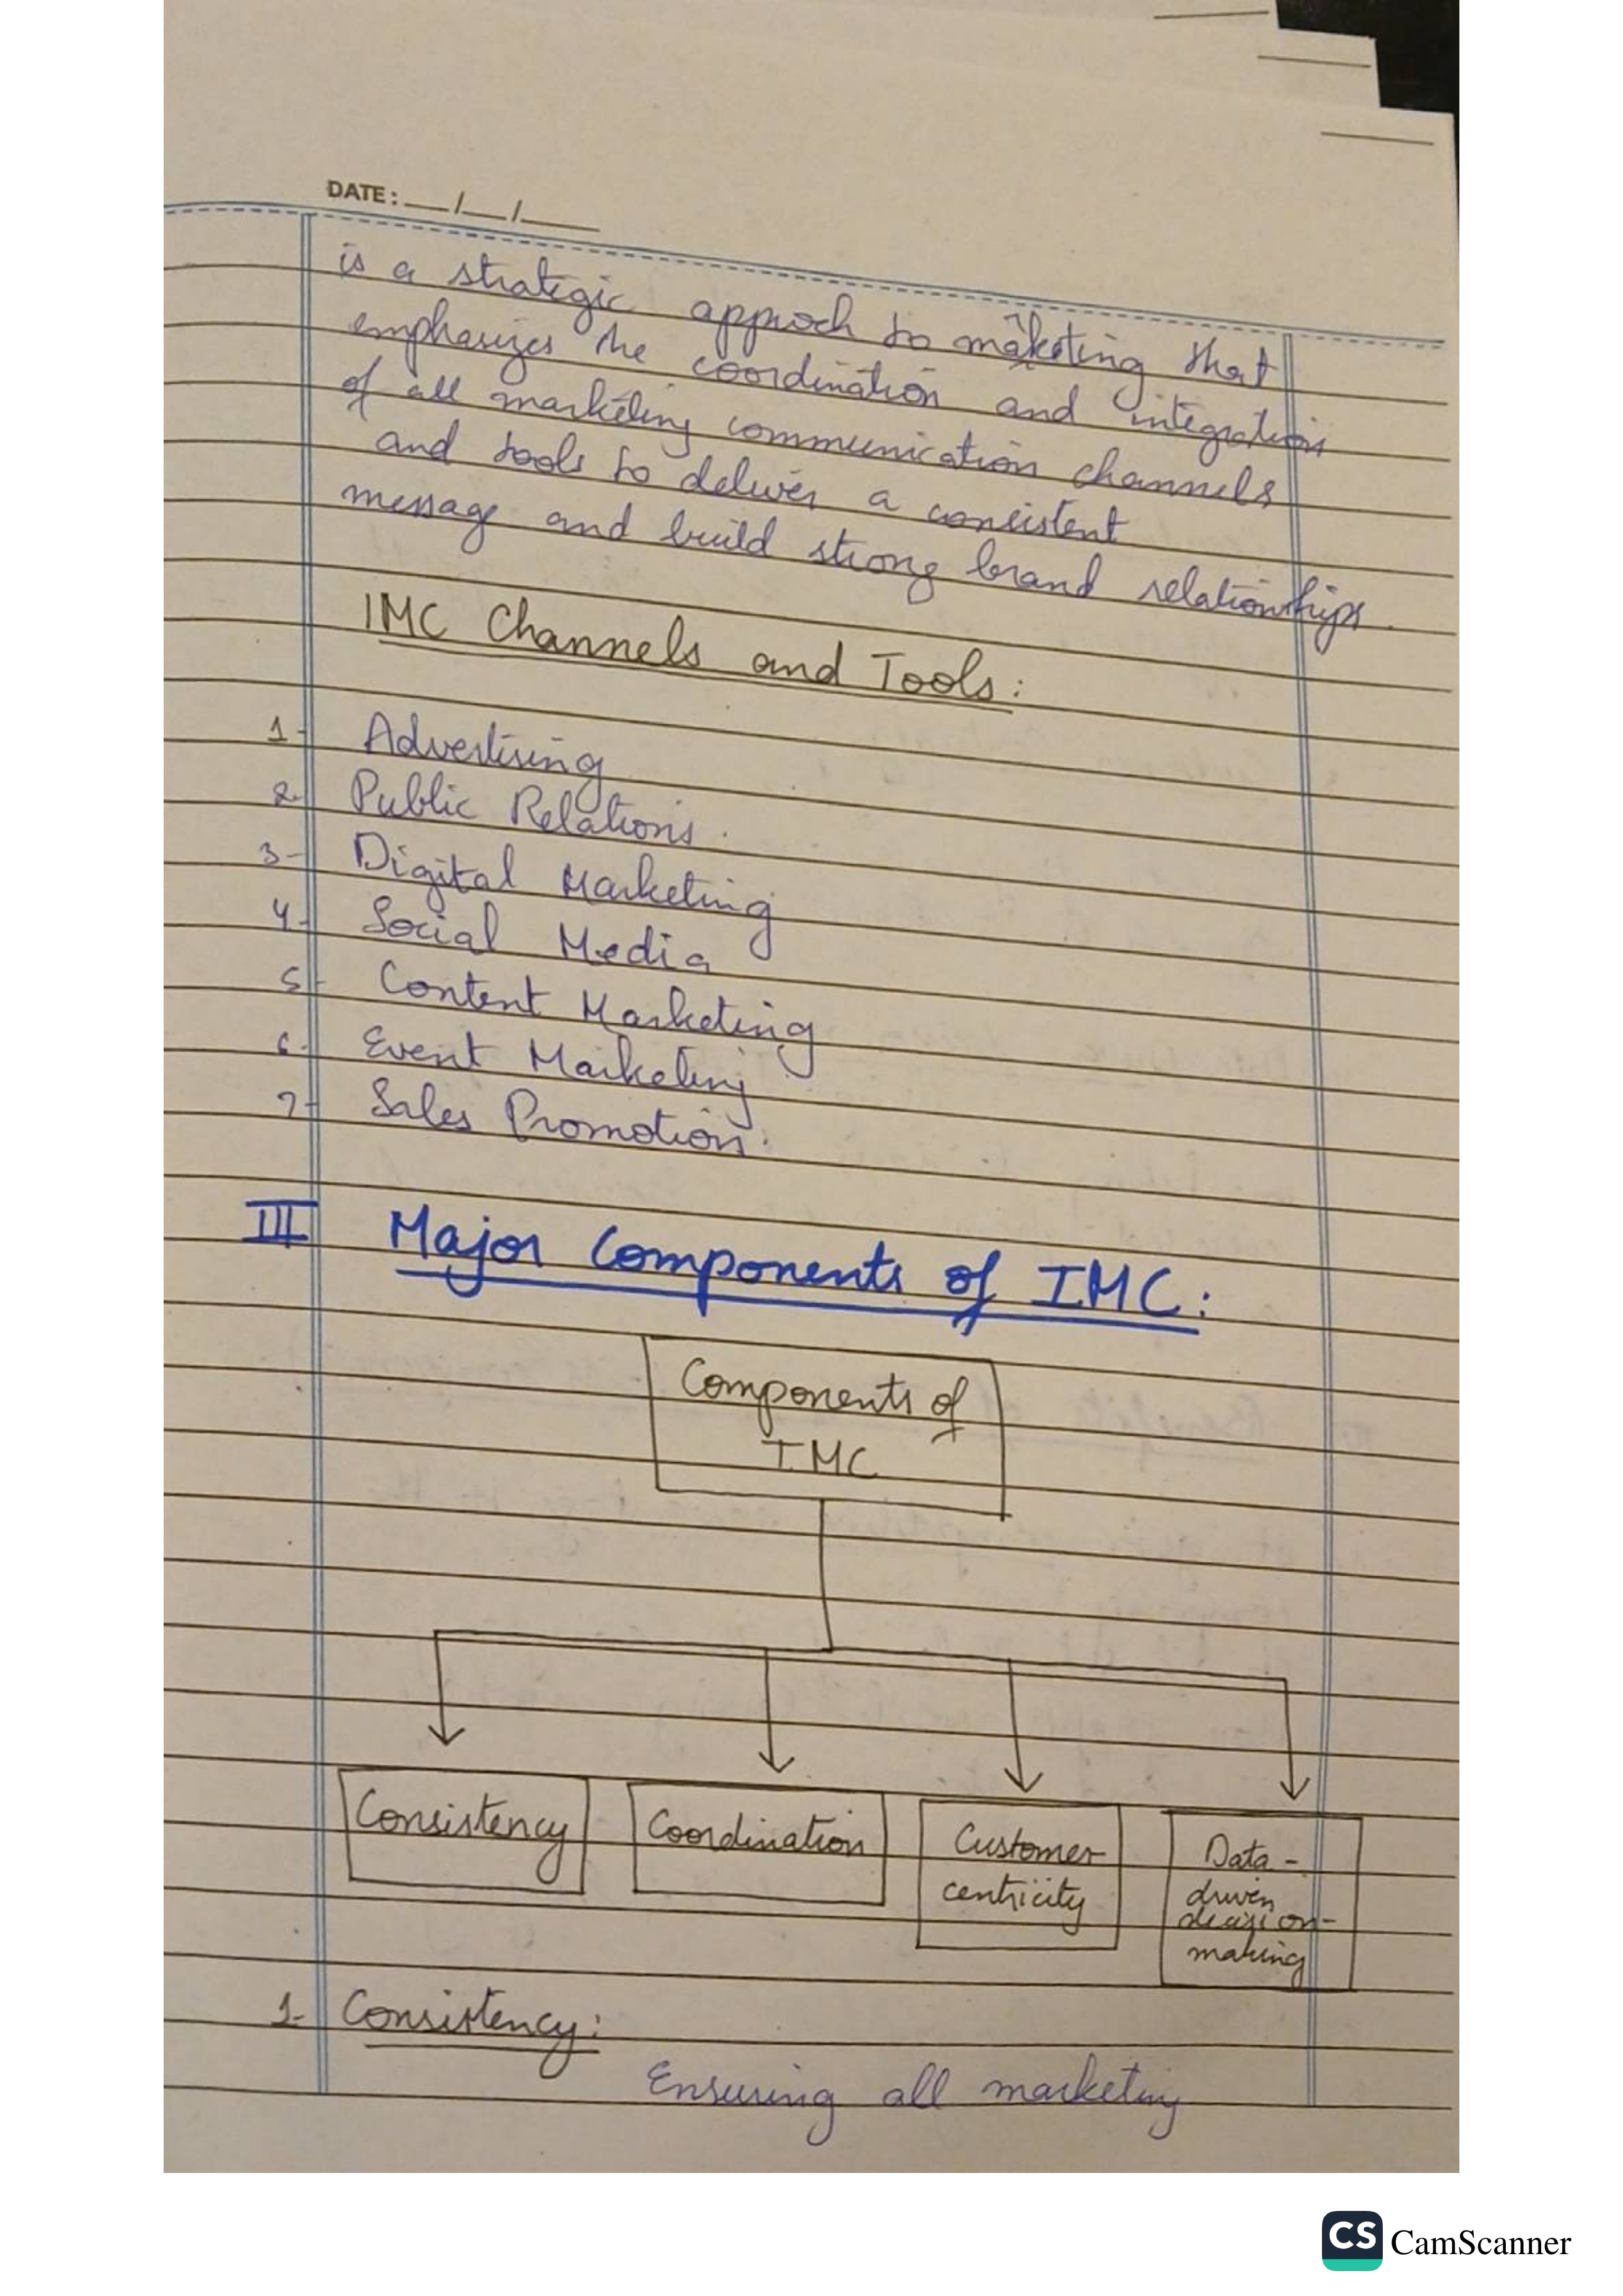 DATE: __/__/____
is a strategic approch to marketing that
emphasizes the coordination and integration
of all marketing communication channels
and tools to deliver a consistent
message and build strong brand relationships.
IMC Channels and Tools:
1- Advertising
2- Public Relations.
3- Digital Marketing
4- Social Media
5- Content Marketing
6- Event Marketing
7- Sales Promotion.
III Major Components of IMC:
Components of
IMC
Consistency
Coordination
Customer
centricity
Data-
driven
decision-
making
1- Consistency:
Ensuring all marketing
CS CamScanner